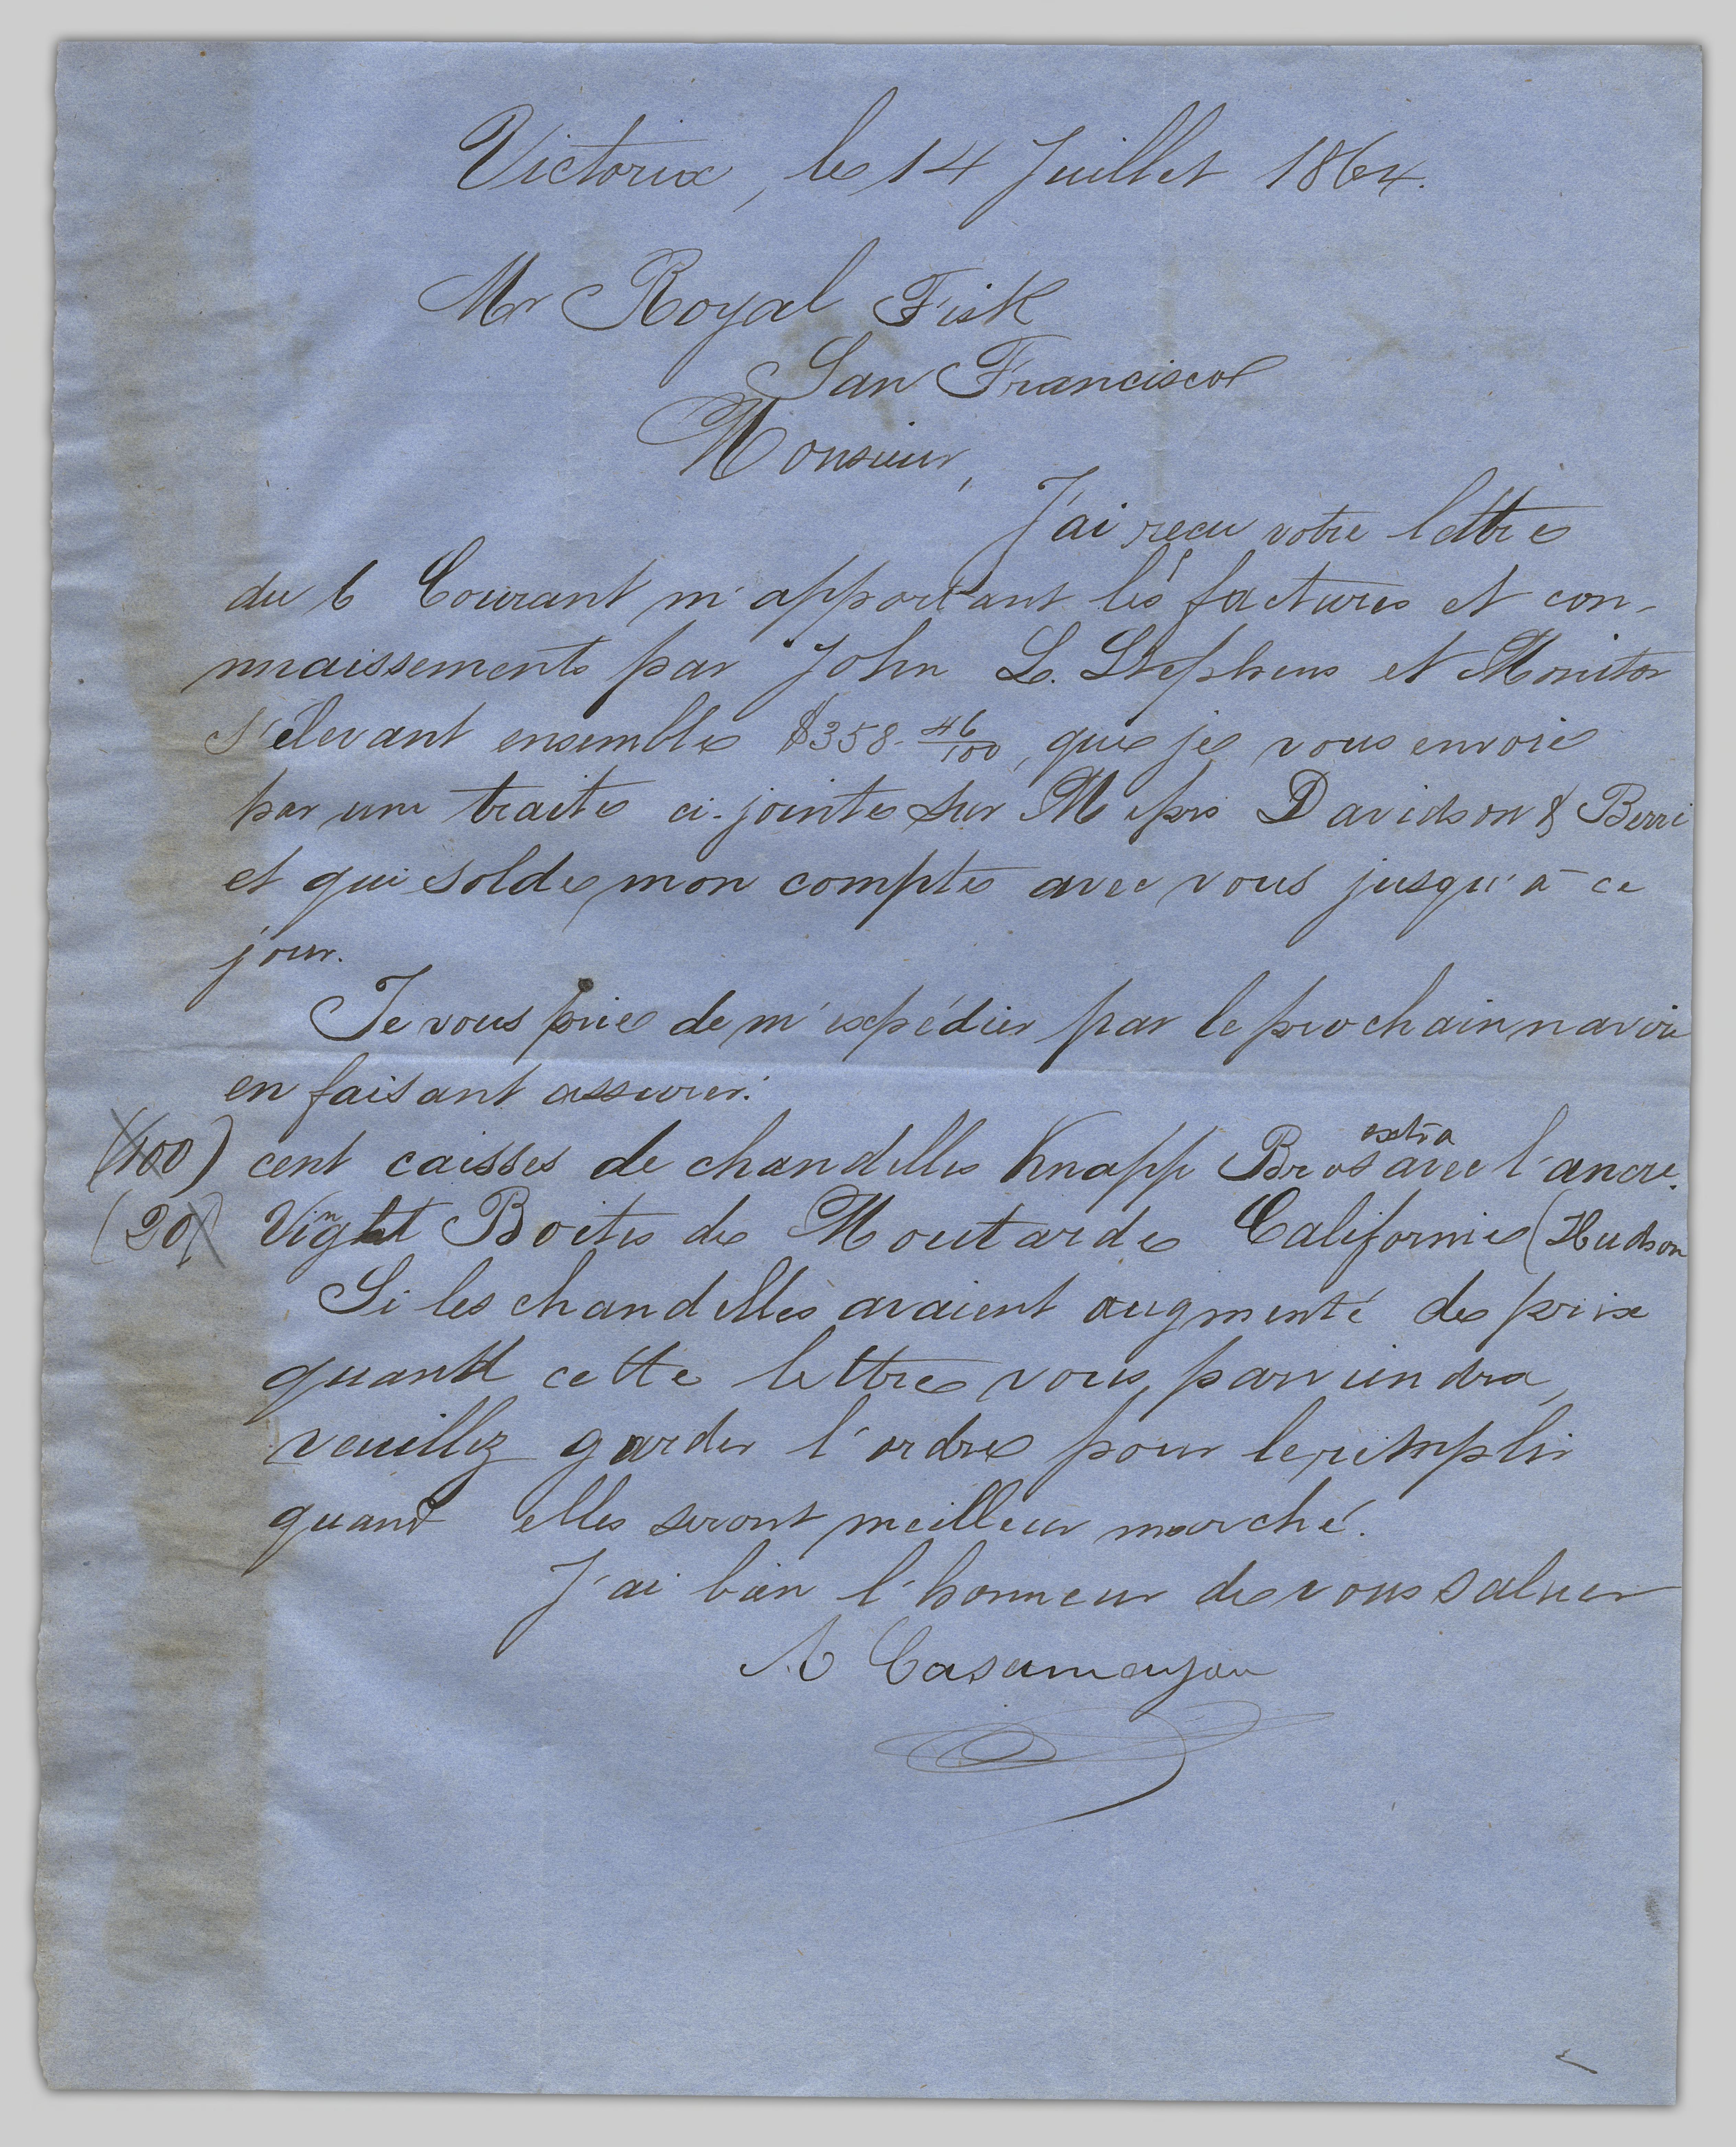 Victoria, le 14 Juillet 1864.
Mr Royal Fisk
San Francisco
Monsieur,
J'ai reçu votre lettre
du 6 Courant m'apportant les factures et con-
nnaissements par John L. Stephens et Monitor
s'élevant ensemble $358-46/100, que je vous envoie
par une traite ci-jointe sur Messrs Davidson & Berri
et qui solde mon compte avec vous jusqu'à ce
jour.
Je vous prie de m'expédier par le prochain navire
en faisant assurer.
(100) cent caisses de chandelles Knapp Bros extra avec l'ancre.
(20) Vinght Boites de Moutarde Californie (Hudson
Si les chandelles avaient augmenté de prix
quand cette lettre vous parviendra,
veuillez garder l'ordre pour le remplir
quand elles seront meilleur marché.
J'ai bien l'honneur de vous saluer
A Casamayou